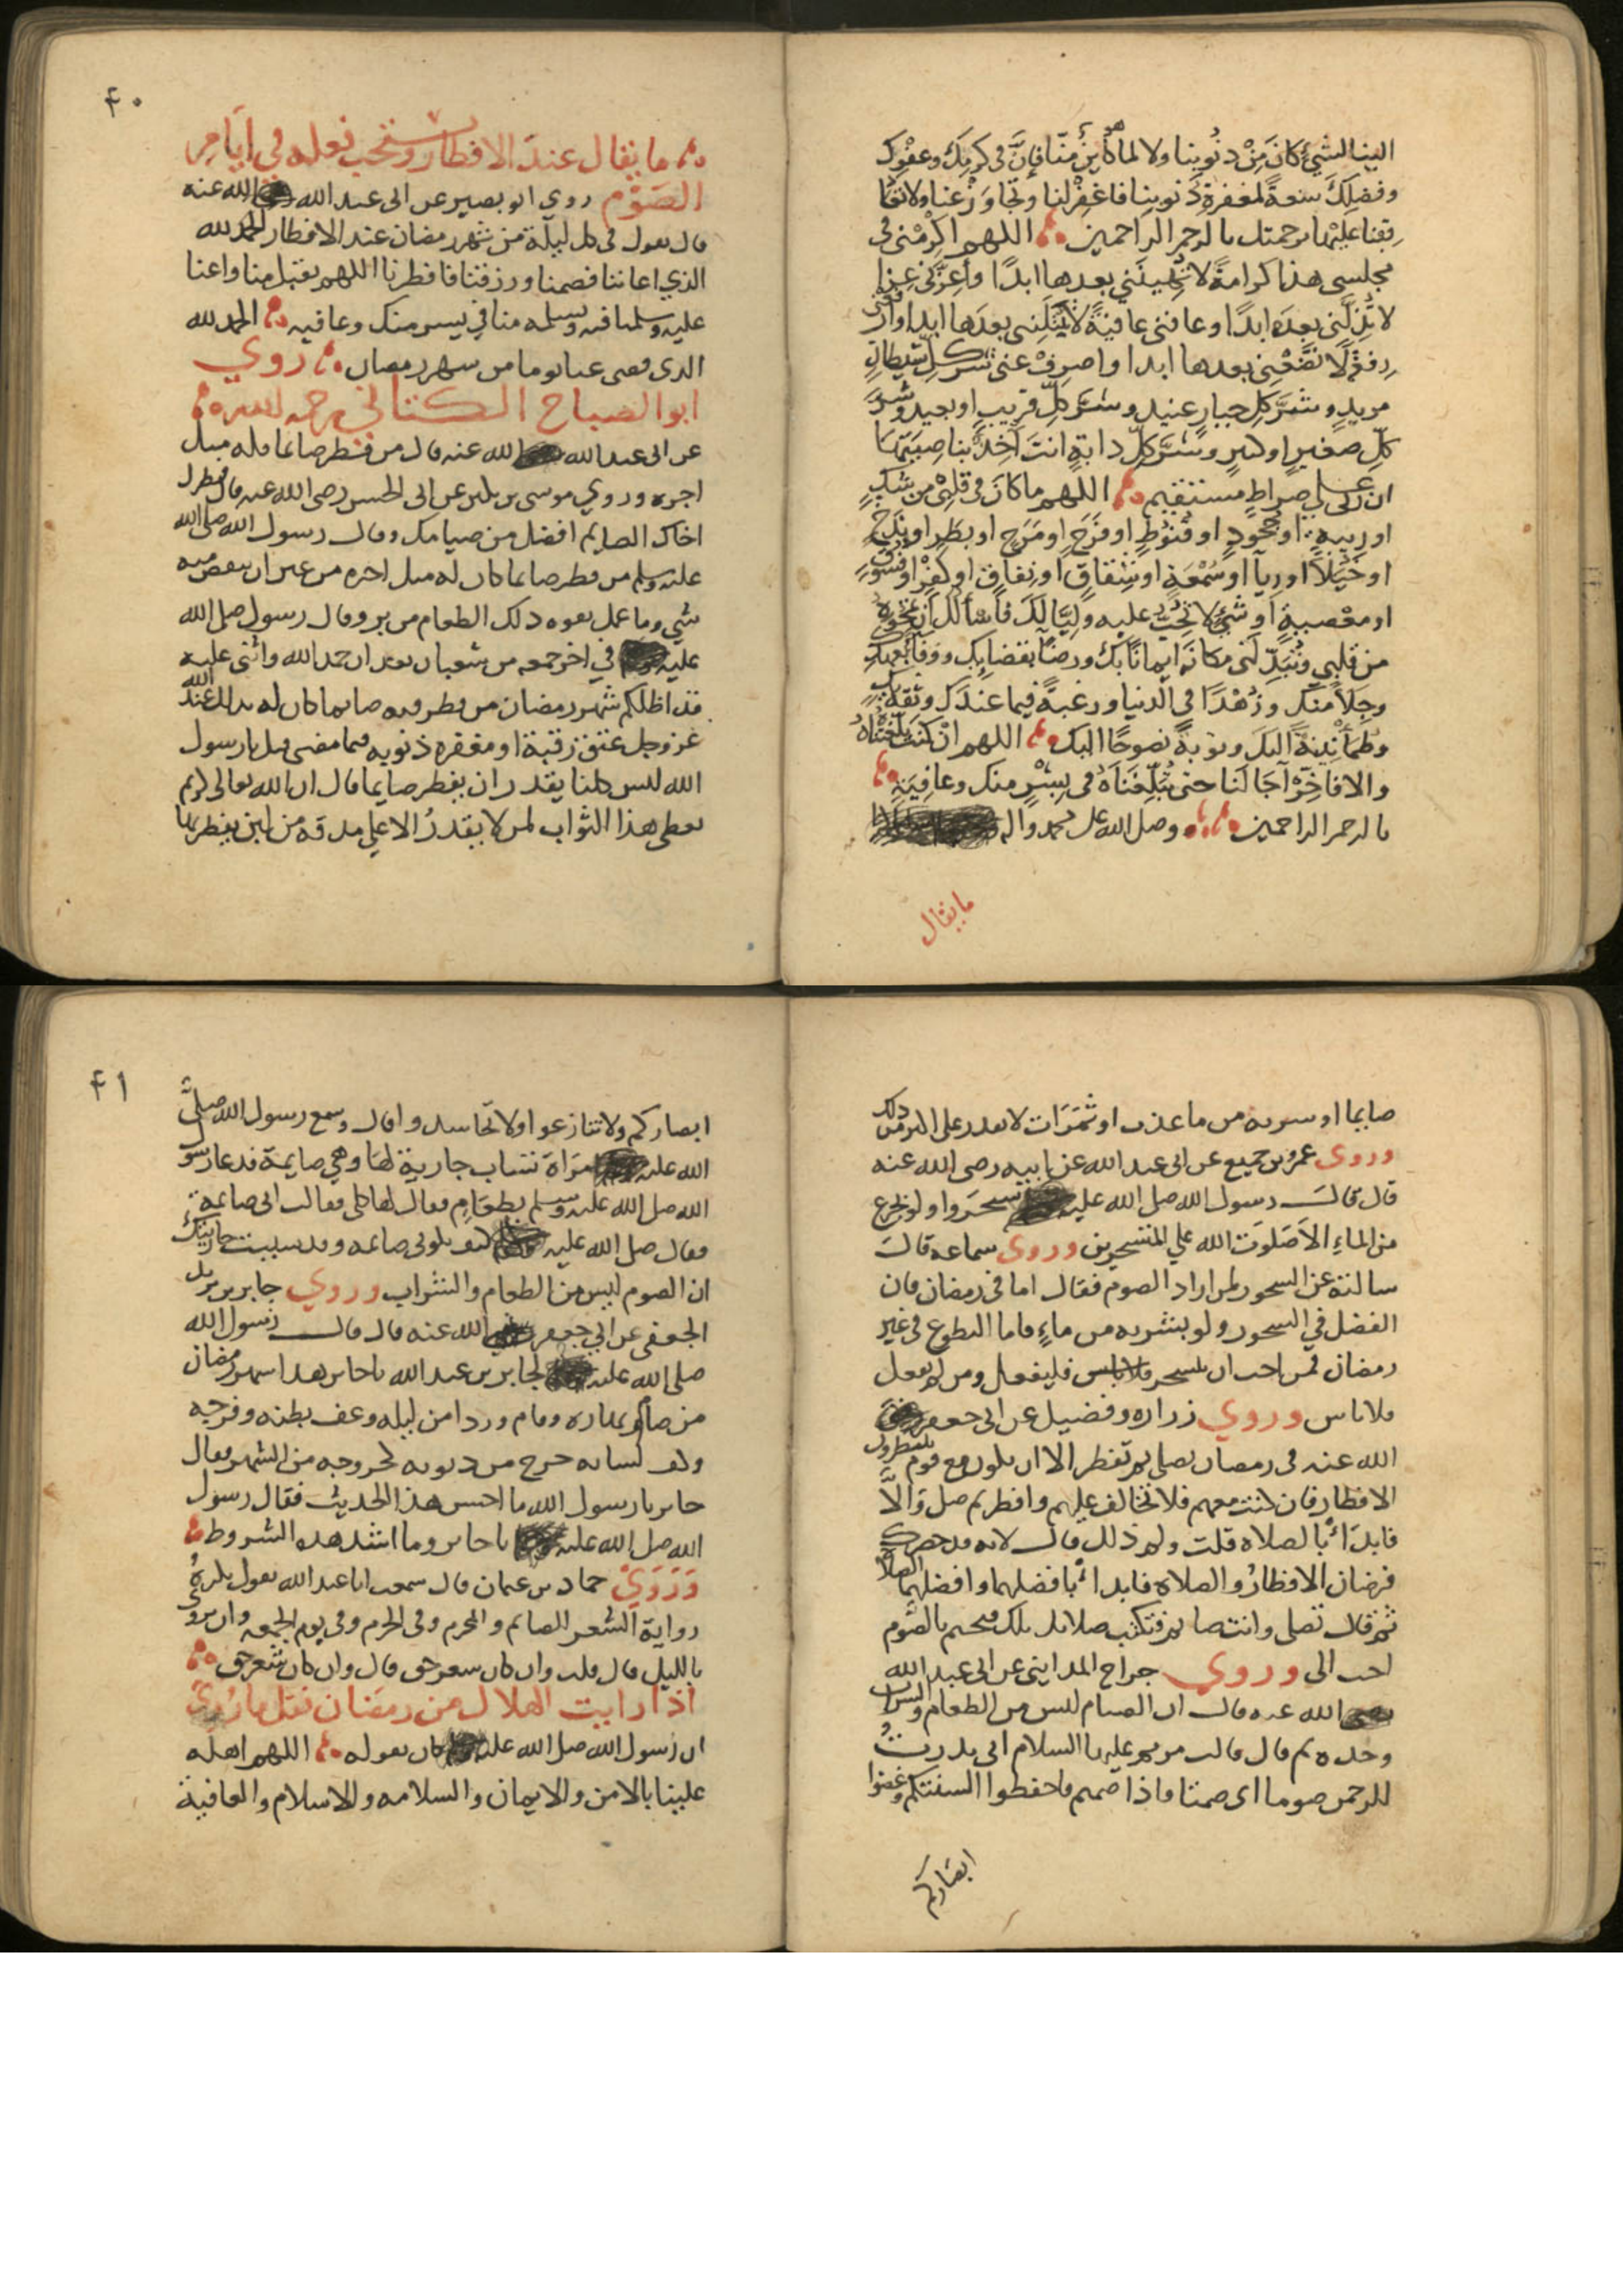 الينا لشيئ كان من ذنوبنا ولا لما هو كاين منّا فإنّ في كرمك وعفوك
وفضلك سعةً لمغفرة ذنوبنا فاغفر لنا وتجاوز عنا ولا تعا
قبنا عليها برحمتك يا ارحم الراحمين اللهم اكرمني في
مجلسي هذا كرامةً لا تهينني بعدها ابدًا وأعزّني عزا
لا تذلّني بعده ابدًا وعافني عافيةً لا تبتليني بعدها ابدا وارفعني
رفعةً لا تضعني بعدها ابدا واصرف عني شرّ كل شيطان
مريدٍ وشرّ كل جبار عنيد وشرّ كلّ قريب او بعيد وشرّ
كلّ صغيرٍ او كبيرٍ وشرّ كلّ دابةٍ انت آخذٌ بناصيتها
ان ربّي علي صراطٍ مستقيم اللهم ما كان في قلبي من شكٍ
او ريبةٍ او جحودٍ او قنوطٍ او فرحٍ او مرحٍ او بطرٍ او بذخٍ
او خيلآ او ريآ او سمعةٍ او شقاقٍ او نفاق او كفرٍ او فسوقٍ
او معصيةٍ او شيئٍ لا تحبّ عليه وليّا لك فأسألك أن تمحوه
من قلبي وتبدّلني مكانه ايمانًا بك ورضًا بقضايك ووفاءً بعهدك
وجلاً منك وزهدًا في الدنيا ورغبةً فيما عندك وثقةً بك
وطمأنينةً اليك وتوبةً نصوحًا اليك اللهم ان كنت بلّغتناه
والا فاخّر آجالنا حتى تبلّغناه في يسرٍ منك وعافيةٍ
يا ارحم الراحمين وصل الله على محمد واله
ما يقال
٤٠
ما يقال عند الافطار ويستحب فعله في ايام
الصوم روي ابو بصير عن ابي عبد الله رضي الله عنه
قال يقول في كل ليلة من شهر رمضان عند الافطار الحمد لله
الذي اعاننا فصمنا ورزقنا فافطرنا اللهم تقبل منا واعنا
عليه وسلمنا فيه وتسلمه منا في يسر منك وعافيه الحمد لله
الذي قضى عنا يوما من شهر رمضان روي
ابو الصباح الكناني رحمه الله
عن ابي عبد الله رضي الله عنه قال من فطر صايما فله مثل
اجره وروي موسى بن بكر عن ابي الحسن رضي الله عنه قال فطرك
اخاك الصايم افضل من صيامك وقال رسول الله صلى الله
عليه وسلم من فطر صايما كان له مثل اجره من غير ان ينقص منه
شي وما عمل بقوه ذلك الطعام من بر وقال رسول صلى الله
عليه في اخر جمعه من شعبان بعد ان حمد الله واثنى عليه
قد اظلكم شهر رمضان من فطر فيه صايما كان له بذلك عند الله
عز وجل عتق رقبة او مغفره ذنوبه فيما مضى قيل يا رسول
الله ليس كلنا يقدر ان يفطر صايما قال ان الله تعالى كريم
يعطي هذا الثواب لمن لا يقدر الا علي مذقه من لبن يفطر بها
صايما او شربه من ما عذب او ثمرات لا يقدر على اكثر من ذلك
وروى عمرو بن جميع عن ابي عبد الله عن ابيه رضي الله عنه
قال قال رسول الله صل الله عليه تسحروا ولو بجرع
من الماءِ الا صلوت الله علي المتسحرين وروى سماعه قال
سالته عن السحور لمن اراد الصوم فقال اما في رمضان فان
الفضل في السحور ولو بشربه من ماءٍ فاما التطوع في غير
رمضان فمن احب ان يتسحر فليفعل ومن لم يفعل
فلا باس وروي زراره وفضيل عن ابي جعفر رضي
الله عنه في رمضان تصلي ثم تفطر الا ان يكون مع قوم ينتظرون
الافطار فان كنت معهم فلا تخالف عليهم وافطر ثم صل والّا
فابدأ بالصلاه قلت ولم ذلك قال لانه قد حضرك
فرضان الافطار والصلاة فابدا بافضلهما وافضلهما الصلاه
ثم قال تصلي وانت صايم فتكتب صلاتك تلك فتختم بالصوم
احب الى وروى جراح المدايني عن ابي عبد الله
رضي الله عنه قال ان الصيام ليس من الطعام والشراب
وحده ثم قال قالت مريم عليها السلام اني نذرت
للرحمن صوما اي صمتا فاذا صمتم فاحفظوا السنتكم وغضوا
ابصاركم
٤١
ابصاركم ولا تنازعوا ولا تحاسدوا قال وسمع رسول الله صلى
الله عليه امراة تساب جارية لها وهي صايمة فدعا رسول
الله صل الله عليه وسلم بطعام فقال لها كلي فقالت اني صايمة
فقال صل الله عليه كيف تكوني صايمه وقد سببت جاريتك
ان الصوم ليس من الطعام والشراب وروي جابر بن يزيد
الجعفى عن ابي جعفر رضي الله عنه قال قال رسول الله
صلى الله عليه لجابر بن عبد الله يا جابر هذا شهر رمضان
من صام نهاره وقام وردا من ليله وعف بطنه وفرجه
وكف لسانه خرج من ذنوبه كخروجه من الشهر فقال
جابر يا رسول الله ما احسن هذا الحديث فقال رسول
الله صل الله عليه يا جابر وما اشد هذه الشروط
وروي حماد بن عثمان قال سمعت ابا عبد الله يقول يكره
رواية الشعر للصايم والمحرم وفي الحرم وفي يوم الجمعه وان يروى
بالليل قال قلت وان كان شعر حق قال وان كان شعر حق
اذا رايت الهلال من رمضان فقل ما روي
ان رسول الله صل الله عليه كان يقوله اللهم اهله
علينا بالامن والايمان والسلامه والاسلام والعافية